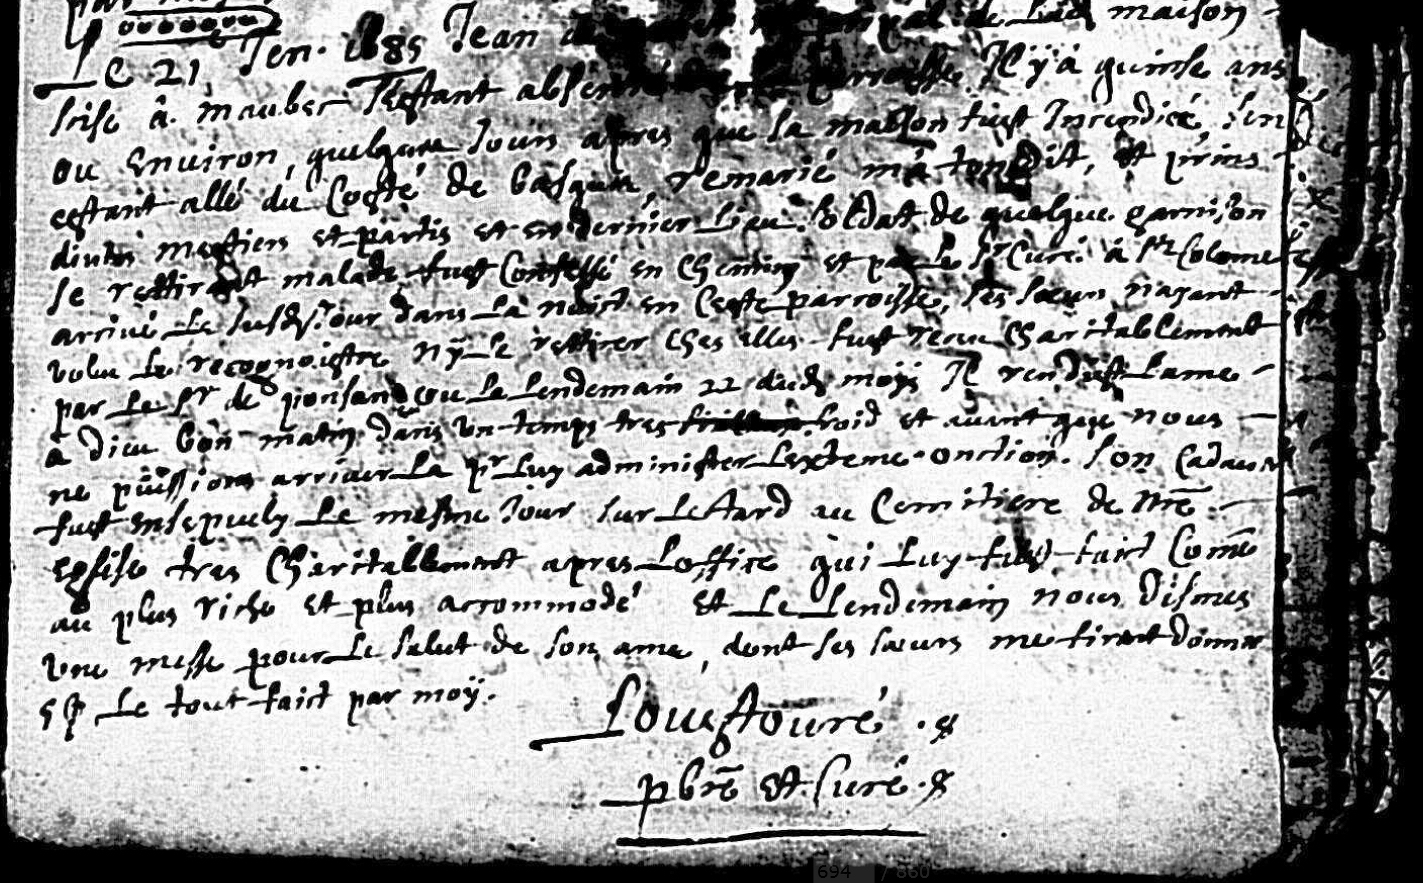 par moy
Le 21 Jen. 1685 Jean de la d. maison
scise à maubec s'estant absenté parroisse Il y a quinse ans
ou Environ, quelques Jours apres que sa maison fust Incendiée, s'en
estant allé du Costé de remarié m'a ton dit, et prins
divers mestiers et partis et en dernier Lieu soldat de quelque garnison
se rettirant malade fust Confessé en Chemin et par Le Sr Curé à Ste Colome
arrivé Le susd. Jour dans La nuict en Ceste parroisse, ses sœurs n'ayant
volu Le recognoistre nÿ Le rettirer Ches elles fust receu Charitablement
par Le Sr de ponsan ou Le Lendemain 22 dud. moÿs Il rendist Lame
à dieu bon matin dans Un temps tres froid et avant que nous
ne pûissions arriver La pr Luy administrer Lextreme-onction. son Cadavre
fust Ensepvely Le mesme Jour sur Le tard au Cemitiere de Nre
Esglise tres Charitablement apres Loffice qui Luy fust faict Come
au plus riche et plus accommodé et Le Lendemain nous Dismes
Une messe pour Le salut de son ame, dont ses sœurs me firent donner
5 s Le tout faict par moÿ.
Louistouré
pbre et Curé
694 / 860